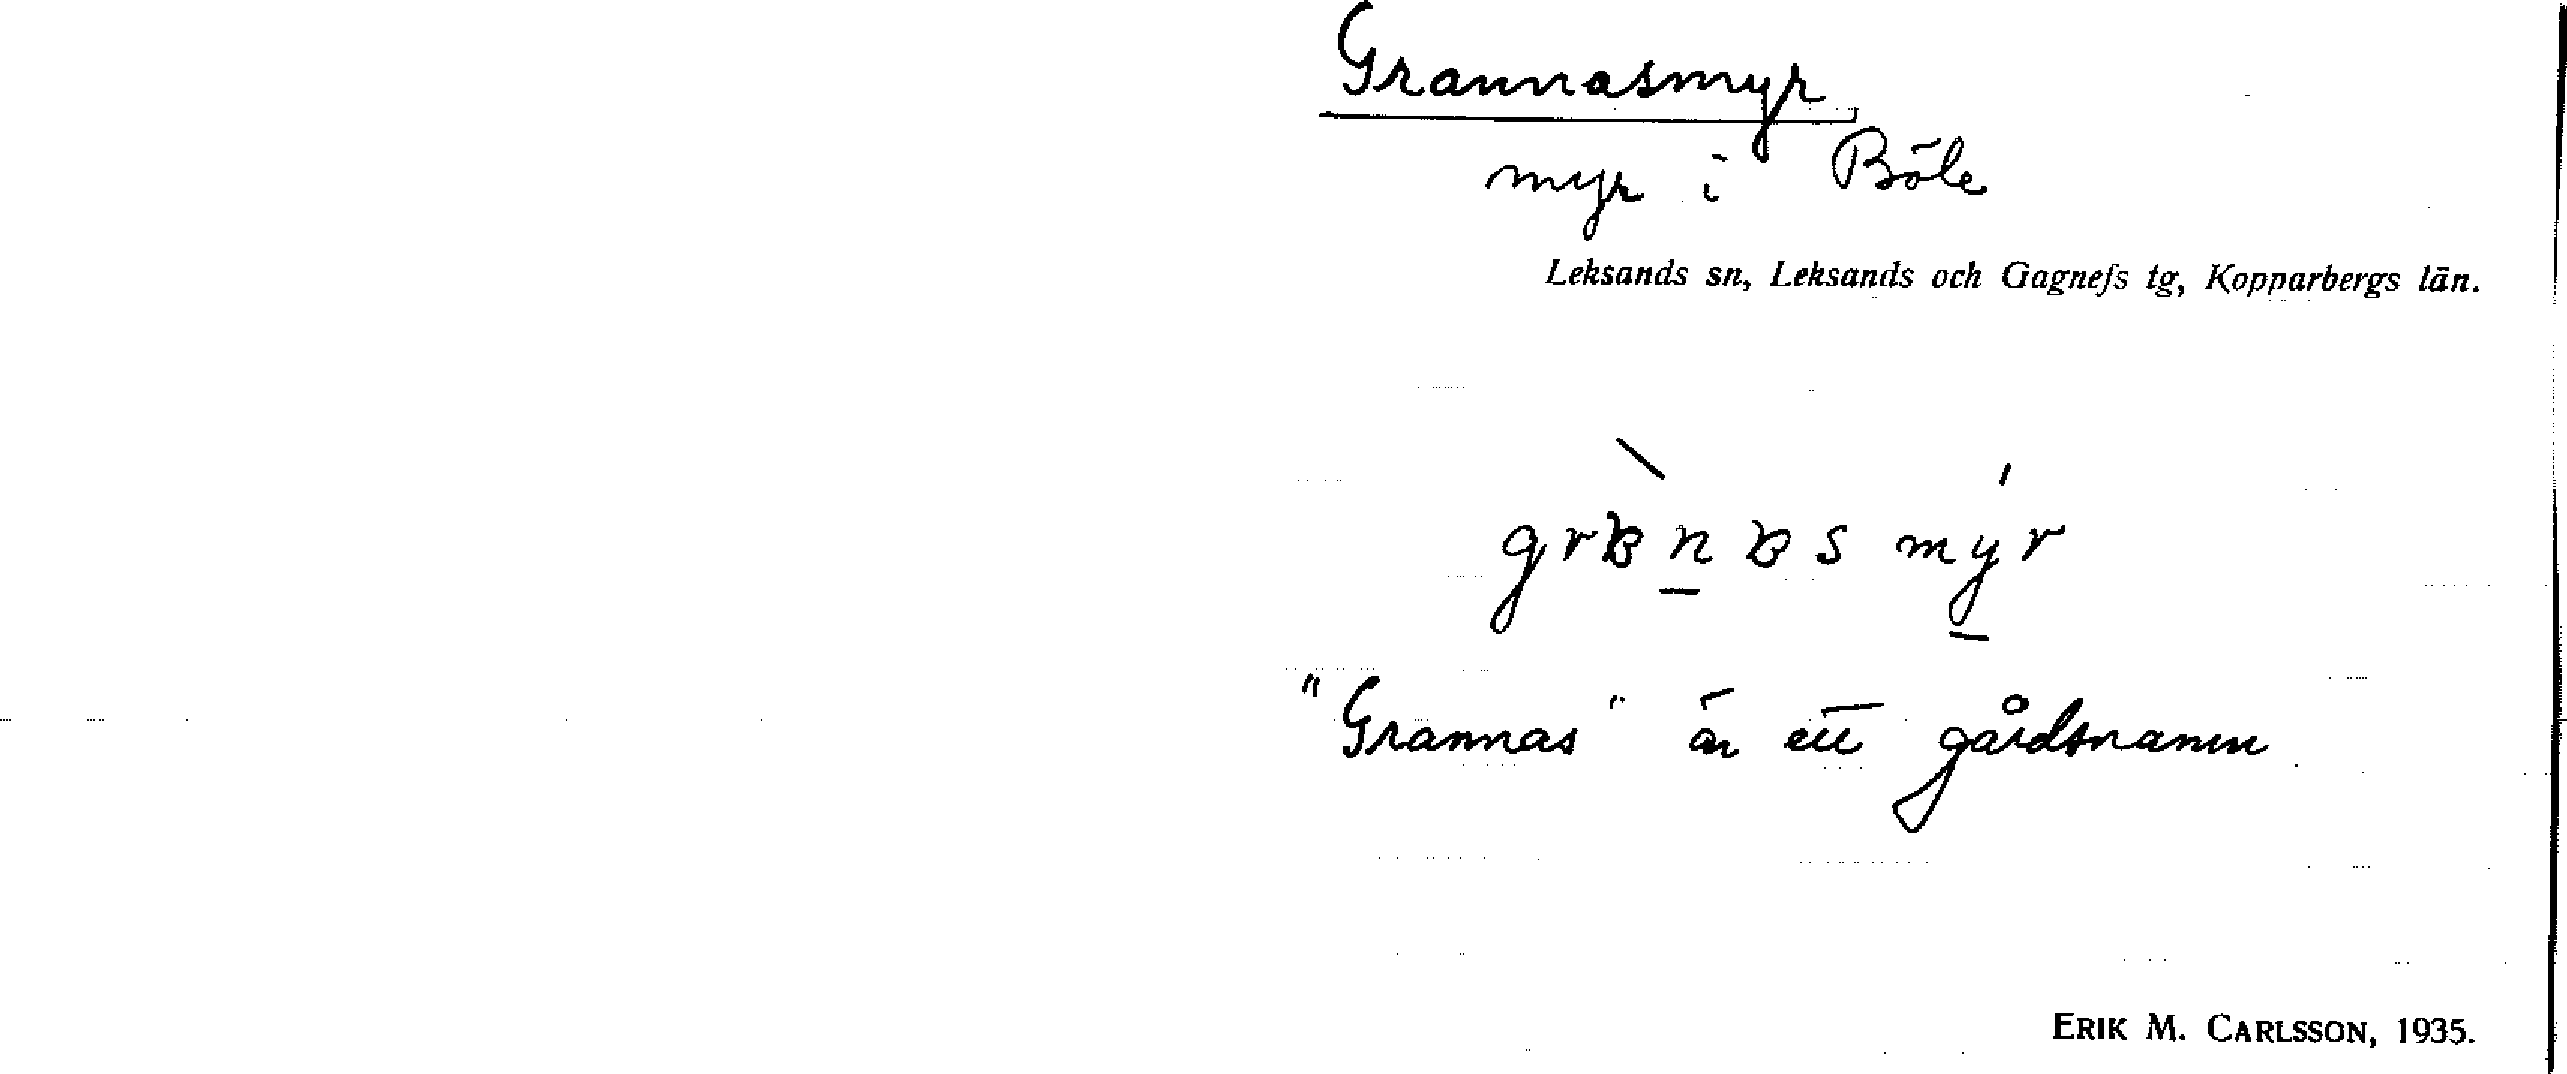 Grannasmyr
myr i Böle
Leksands sn, Leksands och Gagnefs tg, Kopparbergs län.
"Grannas" är ett gårdsnamn
ERIK M. CARLSSON, 1935.